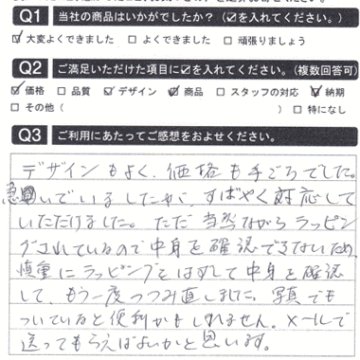 Q1 当社の商品はいかがでしたか？（☑を入れてください。）
☑大変よくできました □よくできました □頑張りましょう
Q2 ご満足いただけた項目に☑を入れてください。（複数回答可）
☑価格 □品質 ☑デザイン ☑商品 □スタッフの対応 ☑納期
□その他（ ） □特になし
Q3 ご利用にあたってご感想をおよせください。
デザインもよく、価格も手ごろでした。
急いでいましたが、すばやく対応して
いただけました。ただ当然ながらラッピン
グされているので中身を確認できないため、
慎重にラッピングをはずして中身を確認
して、もう一度つつみ直しました。写真でも
ついていると便利かもしれません。メールで
送ってもらえばよいかと思います。